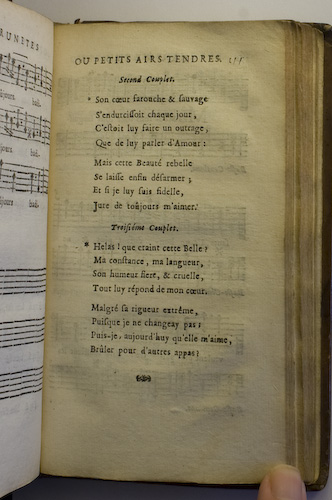 RUNETES
OU PETITS AIRS TENDRES.
Second Couplet.
* Son cœur farouche & sauvage
S'endurcissoit chaque jour,
C'estoit luy faire un outrage,
Que de luy parler d'Amour:
Mais cette Beauté rebelle
Se laisse enfin désarmer;
Et si je luy suis fidelle,
Jure de toûjours m'aimer.
Troisiéme Couplet.
* Helas! que craint cette Belle?
Ma constance, ma langueur,
Son humeur fiere, & cruelle,
Tout luy répond de mon cœur.
Malgré sa rigueur extrême,
Puisque je ne changeay pas;
Puis-je, aujourd'huy qu'elle m'aime,
Brûler pour d'autres appas?